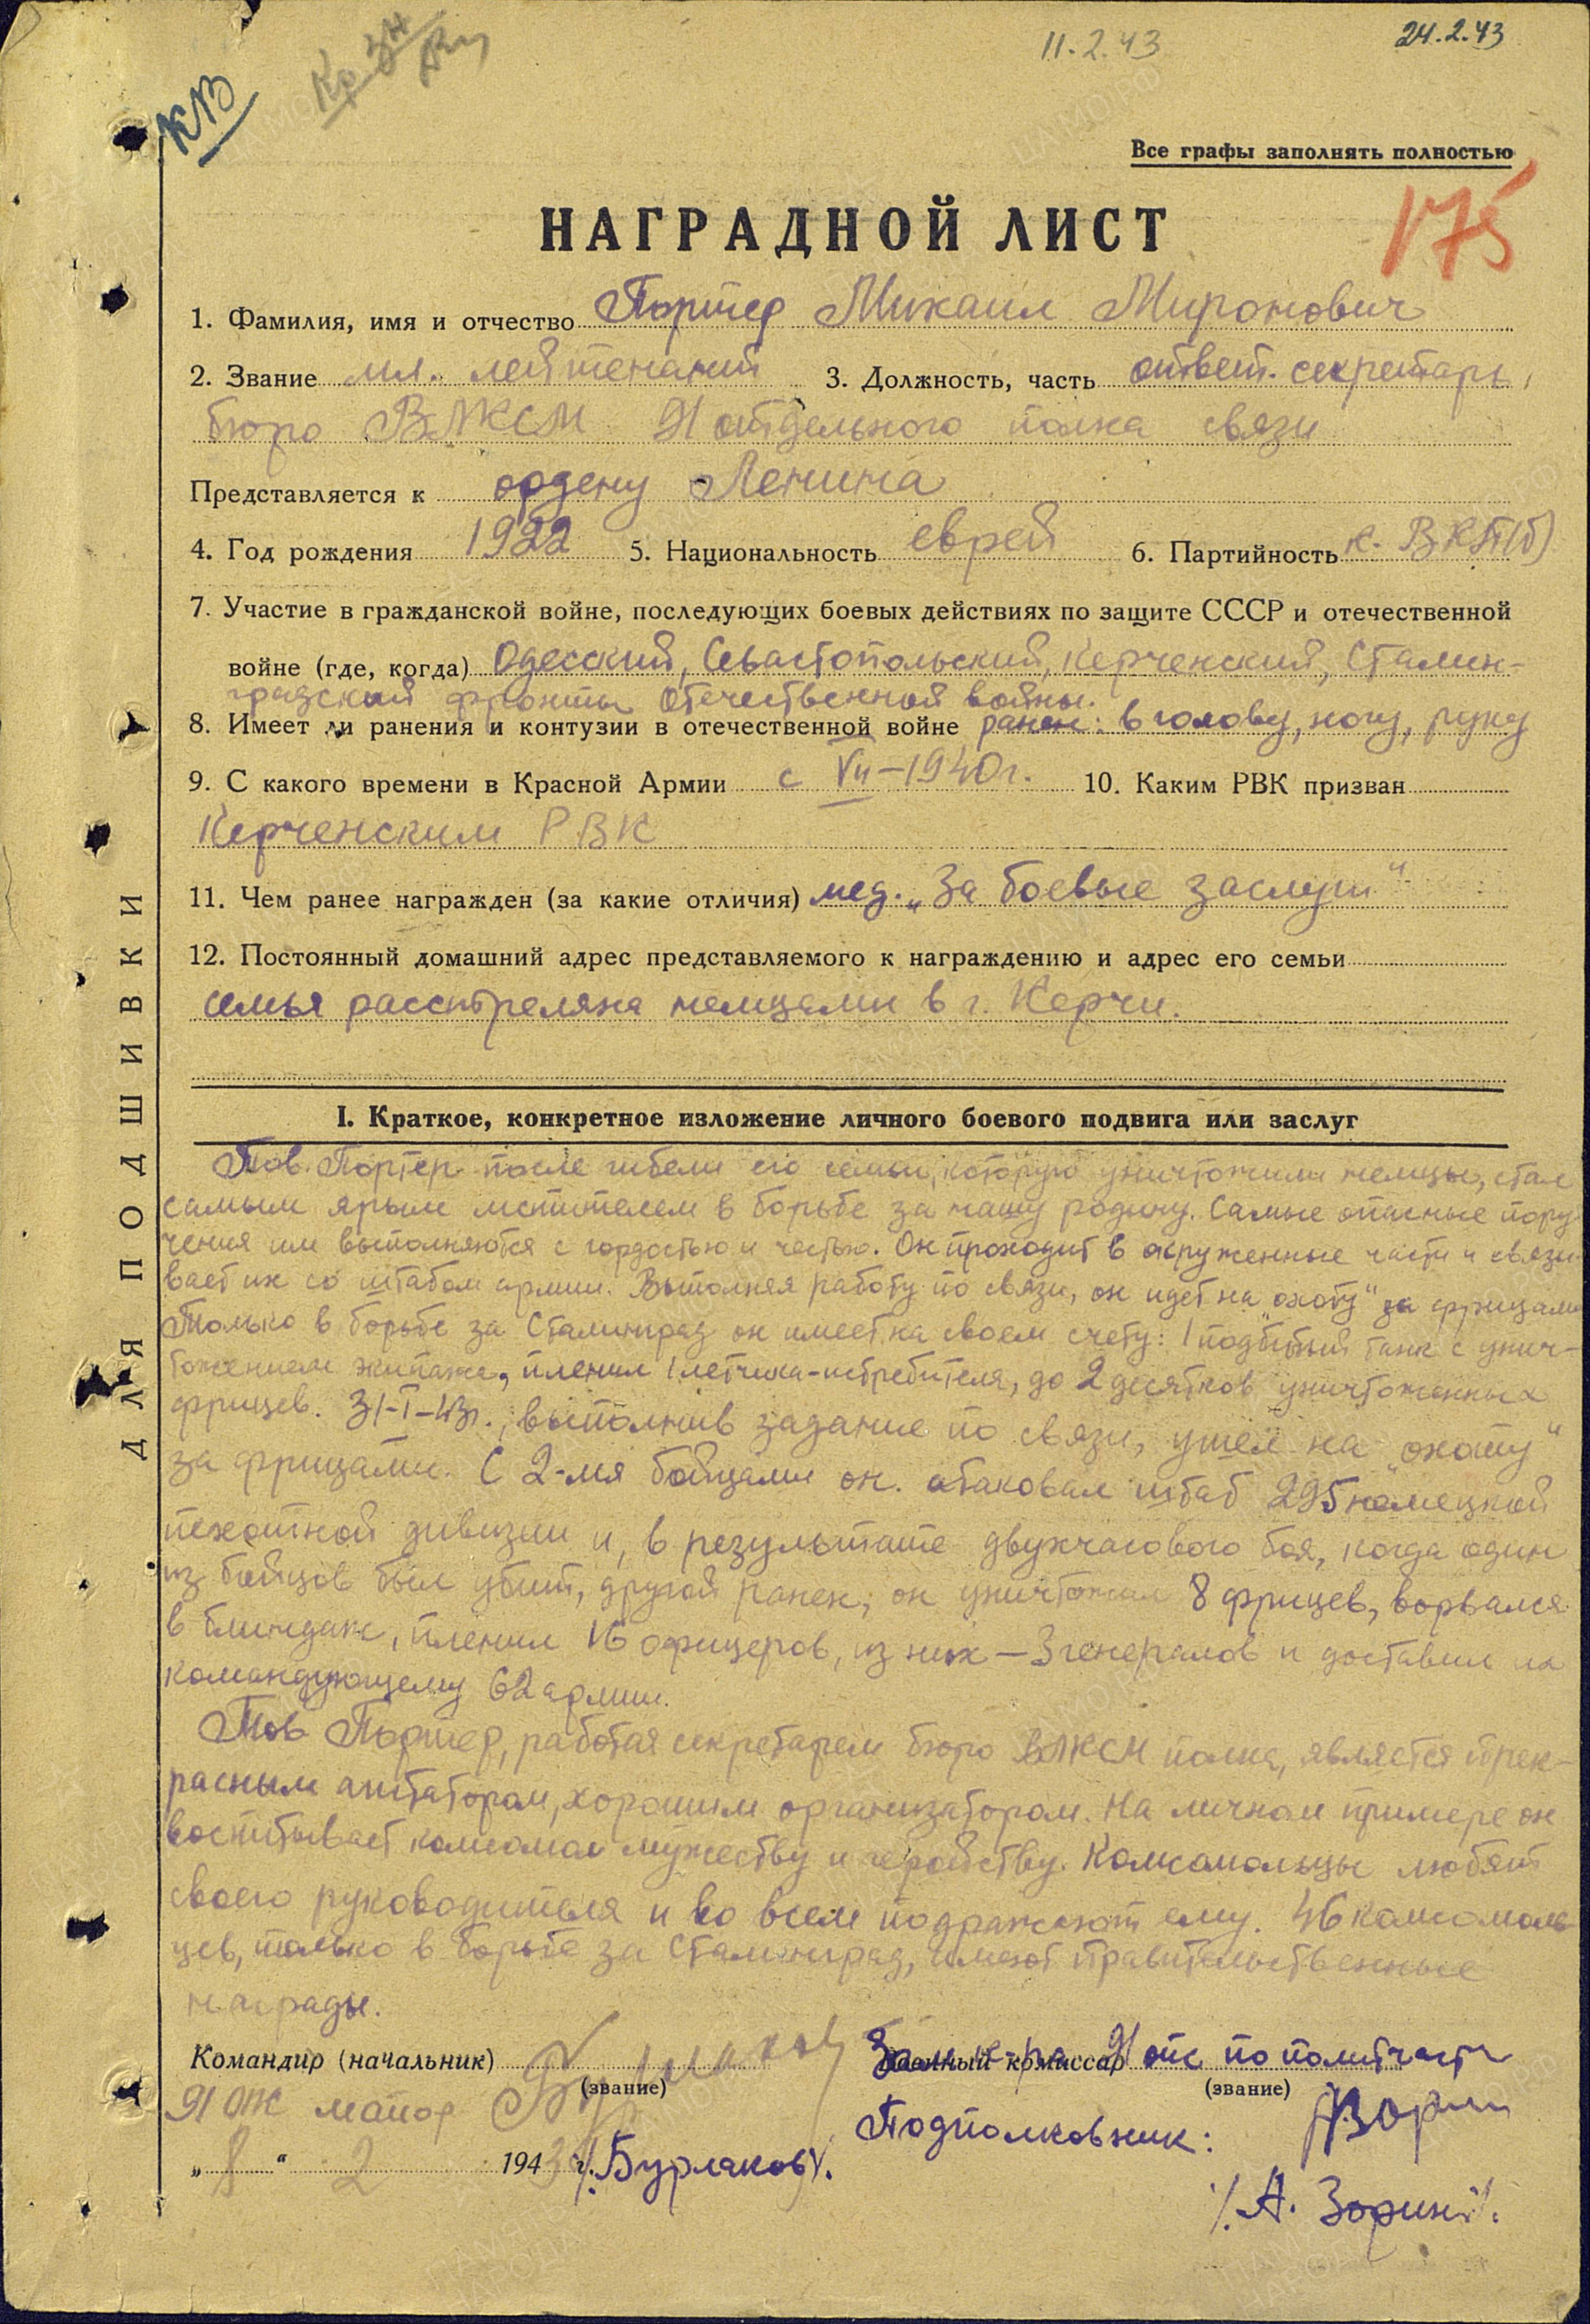 11.2.43
24.2.43
КВ
Кр зн
Все графы заполнять полностью
НАГРАДНОЙ ЛИСТ
175
1. Фамилия, имя и отчество Портер Михаил Миронович
2. Звание мл. лейтенант 3. Должность, часть ответ. секретарь
бюро ВЛКСМ 91 отдельного полка связи
Представляется к ордену Ленина
4. Год рождения 1922 5. Национальность еврей 6. Партийность к. ВКП(б)
7. Участие в гражданской войне, последующих боевых действиях по защите СССР и отечественной
войне (где, когда) Одесский, Севастопольский, Керченский, Сталин-
градский фронты Отечественной войны.
8. Имеет ли ранения и контузии в отечественной войне ранен: в голову, ногу, руку
9. С какого времени в Красной Армии с VII-1940г. 10. Каким РВК призван
Керченским РВК
11. Чем ранее награжден (за какие отличия) мед. „За боевые заслуги"
12. Постоянный домашний адрес представляемого к награждению и адрес его семьи
семья расстреляна немцами в г. Керчи.
ДЛЯ ПОДШИВКИ
I. Краткое, конкретное изложение личного боевого подвига или заслуг
Тов. Портер после гибели его семьи, которую уничтожили немцы, стал
самым ярым мстителем в борьбе за нашу родину. Самые опасные пору-
чения им выполняются с гордостью и честью. Он проходит в окруженные части и связы-
вает их со штабом армии. Выполняя работу по связи, он идет на „охоту" за фрицами
Только в борьбе за Сталинград он имеет на своем счету: 1 подбитый танк с унич-
тожением экипажа, пленил 1 летчика-истребителя, до 2 десятков уничтоженных
фрицев. 31-I-43г., выполнив задание по связи, ушел на „охоту"
за фрицами. С 2-мя бойцами он атаковал штаб 295 немецкой
пехотной дивизии и, в результате двухчасового боя, когда один
из бойцов был убит, другой ранен, он уничтожил 8 фрицев, ворвался
в блиндаж, пленил 16 офицеров, из них — 3 генералов и доставил их
командующему 62 армии.
Тов Портер, работая секретарем бюро ВЛКСМ полка, является прек-
расным агитатором, хорошим организатором. На личном примере он
воспитывает комсомол мужеству и геройству. Комсомольцы любят
своего руководителя и во всем подражают ему. 46 комсомоль-
цев, только в борьбе за Сталинград, имеют правительственные
награды.
Командир (начальник) Зам к-ра 91 опс по политчасти
Военный комиссар
(звание) (звание)
91 опс майор
Подполковник:
„8" 2 1943 г. /Бурлаков/.
/А. Зорин/.